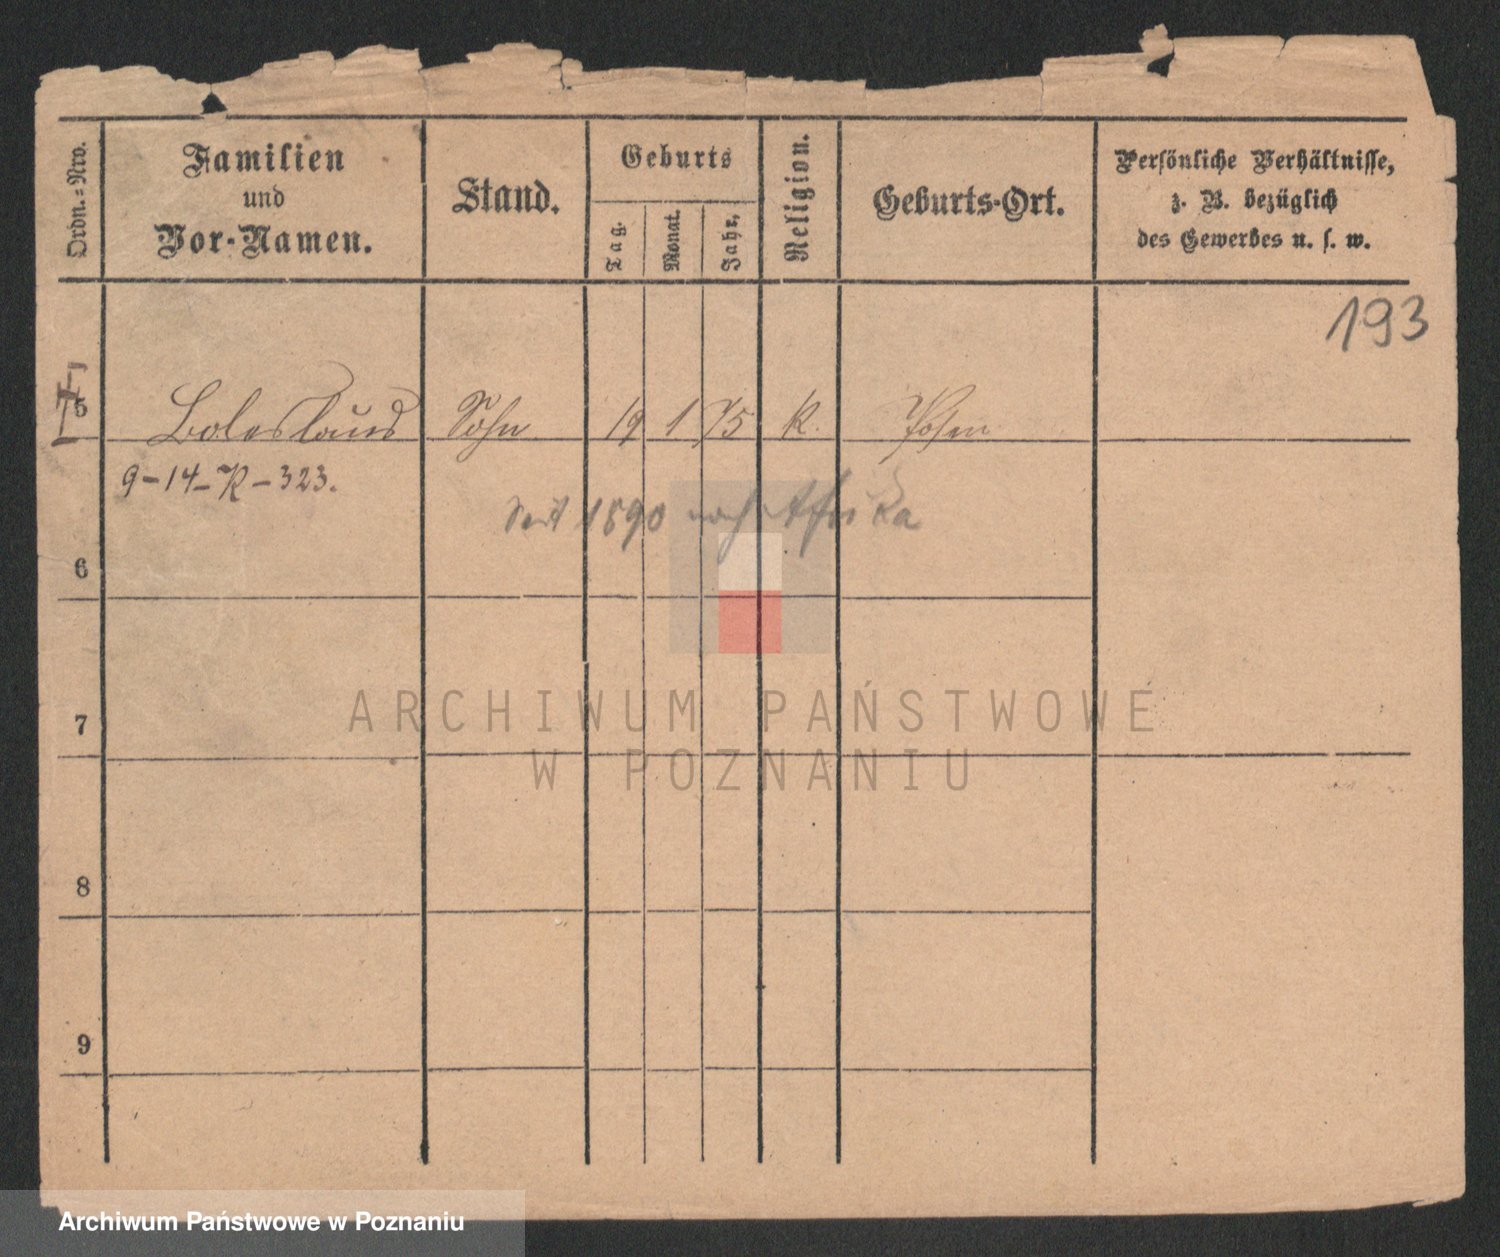 Ordn.=Nro.
Familien
und
Vor-Namen.
Stand.
Geburts
Tag.
Monat.
Jahr.
Religion.
Geburts-Ort.
Persönliche Verhältnisse,
z. B. bezüglich
des Gewerbes u. s. w.
193
5 Boleslaus Sohn 19 1 75 K. Posen
9-14-K-323.
Seit 1890 nach Afrika
6
7
8
9
ARCHIWUM PAŃSTWOWE
W POZNANIU
Archiwum Państwowe w Poznaniu